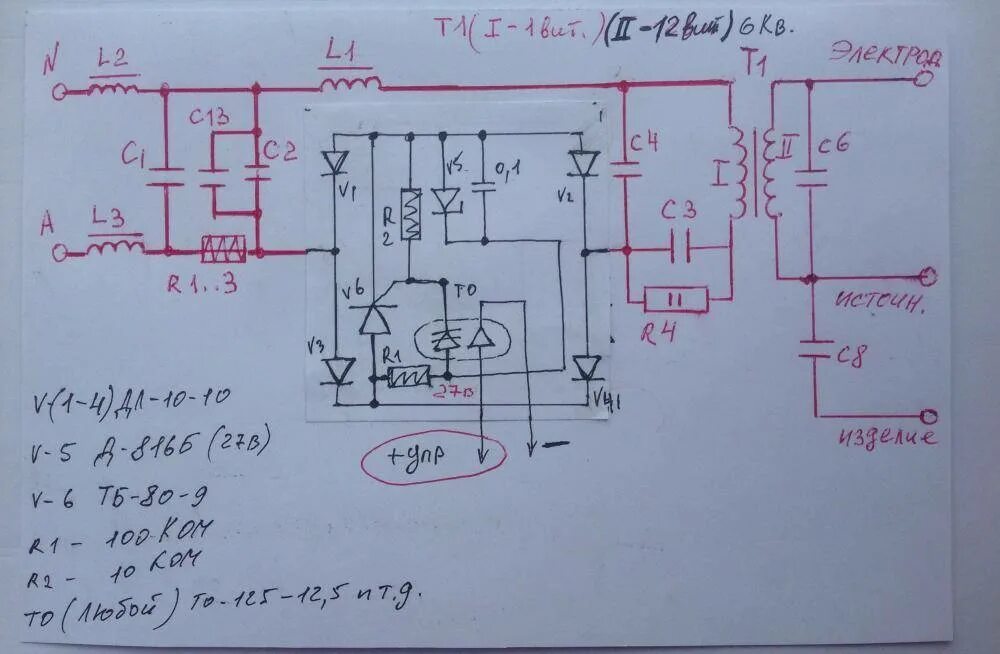 T1 (I-1вит.) (II-12вит) 6 кв.
N
L2
L1
T1
ЭЛЕКТРОД
C1
C13
C2
C4
I
II
C6
V1
R2
V5
0,1
V2
C3
A
L3
R1..3
R4
ИСТОЧН.
V6
TO
V3
R1
27в
V4
C8
+упр
−
ИЗДЕЛИЕ
V-(1-4) ДЛ-10-10
V-5 Д-816Б (27В)
V-6 ТБ-80-9
R1 - 100 КОМ
R2 - 10 КОМ
ТО (ЛЮБОЙ) ТО-125-12,5 и т.д.